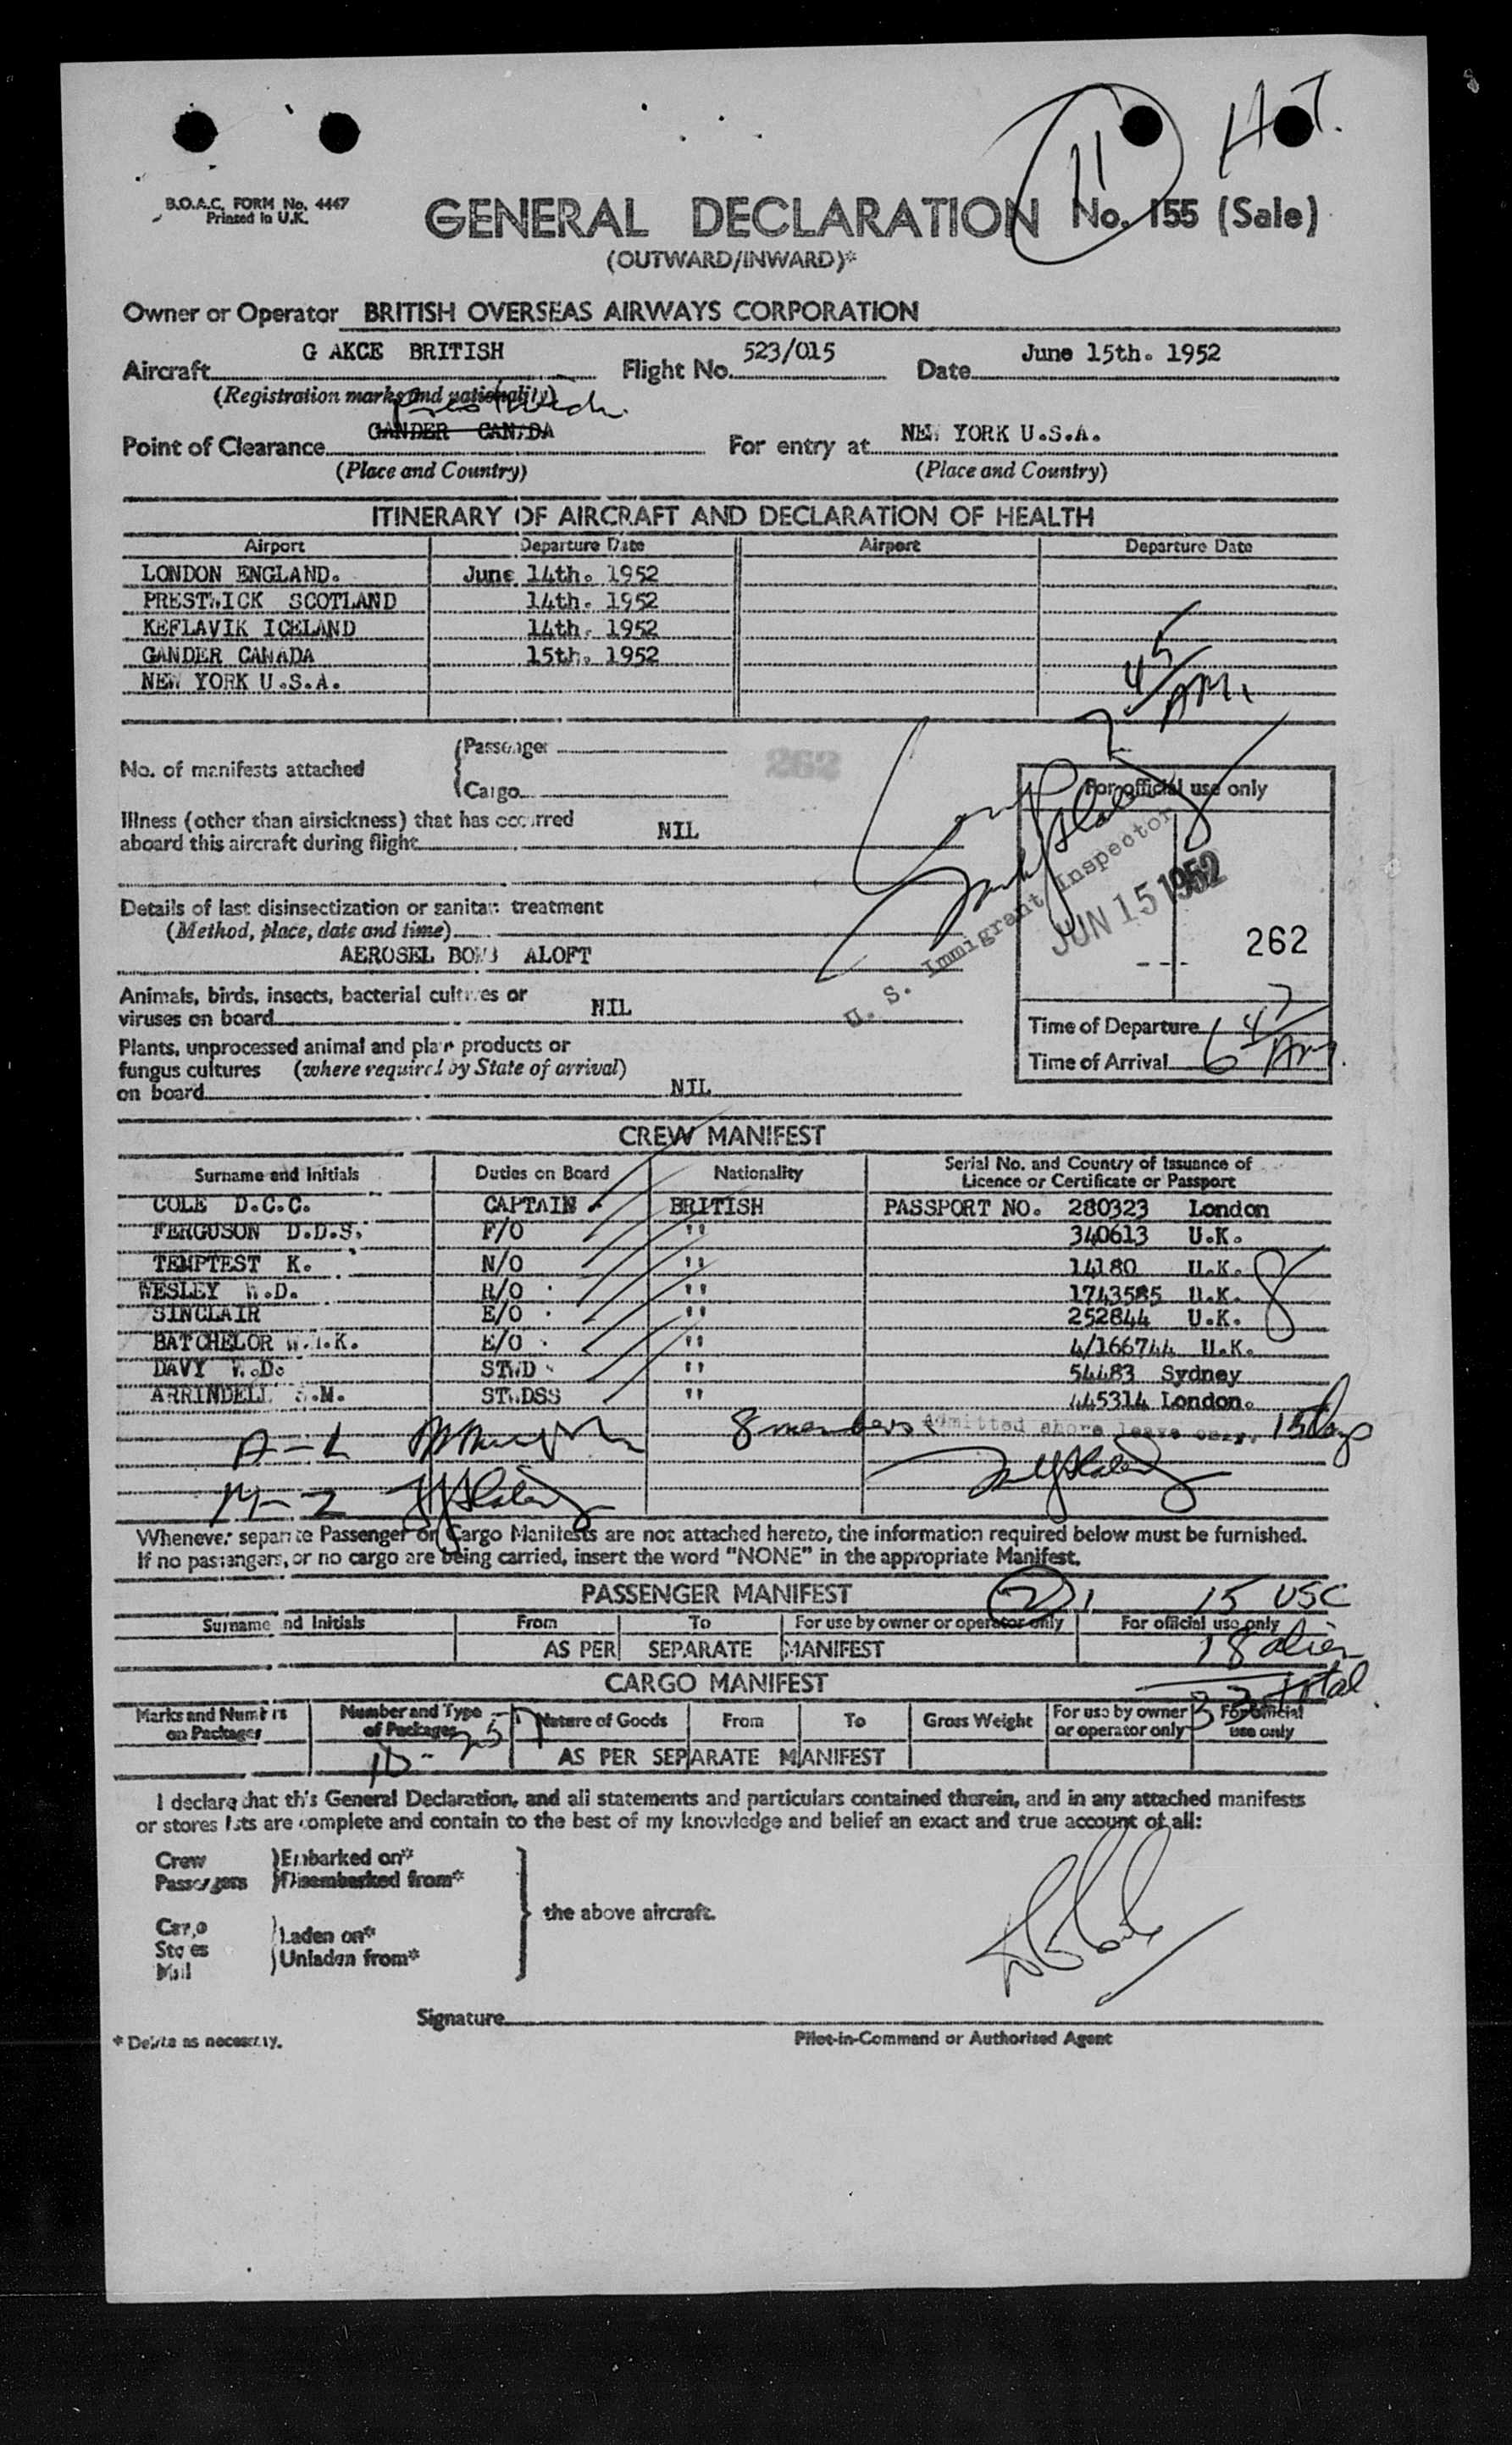 11 H.T.
B.O.A.C. FORM No. 4447
Printed in U.K.
GENERAL DECLARATION No. 155 (Sale)
(OUTWARD/INWARD)*
Owner or Operator BRITISH OVERSEAS AIRWAYS CORPORATION
Aircraft G AKCE BRITISH Flight No. 523/015 Date June 15th. 1952
(Registration marks and nationality)
Prestwick
Point of Clearance GANDER CANADA For entry at NEW YORK U.S.A.
(Place and Country) (Place and Country)
ITINERARY OF AIRCRAFT AND DECLARATION OF HEALTH
Airport Departure Date Airport Departure Date
LONDON ENGLAND. June 14th. 1952
PRESTWICK SCOTLAND 14th. 1952
KEFLAVIK ICELAND 14th. 1952
GANDER CANADA 15th. 1952
NEW YORK U.S.A.
7 45 AM.
No. of manifests attached
Passenger
Cargo
262
For official use only
Illness (other than airsickness) that has occurred
aboard this aircraft during flight NIL
U. S. Immigrant Inspector
JUN 15 1952
262
Details of last disinsectization or sanitary treatment
(Method, place, date and time)
AEROSEL BOMB ALOFT
Animals, birds, insects, bacterial cultures or
viruses on board NIL
Time of Departure
Time of Arrival 6 47 AM.
Plants, unprocessed animal and plant products or
fungus cultures (where required by State of arrival)
on board NIL
CREW MANIFEST
Surname and Initials Duties on Board Nationality Serial No. and Country of Issuance of
Licence or Certificate or Passport
COLE D.C.C. CAPTAIN BRITISH PASSPORT NO. 280323 London
FERGUSON D.D.S. F/O " 340613 U.K.
TEMPTEST K. N/O " 14180 U.K.
WESLEY W.D. R/O " 1743585 U.K.
SINCLAIR E/O " 252844 U.K.
BATCHELOR E/O " 4/166744 U.K.
DAVY W.D. STWD " 54483 Sydney
ARRINDELL .M. STWDSS " 445314 London.
8
8 members admitted shore leave only. 15 days
A-L
M-Z
Whenever separate Passenger or Cargo Manifests are not attached hereto, the information required below must be furnished.
If no passengers, or no cargo are being carried, insert the word "NONE" in the appropriate Manifest.
PASSENGER MANIFEST 15 USC
Surname and Initials From To For use by owner or operator only For official use only
AS PER SEPARATE MANIFEST 18 alien
33 total
CARGO MANIFEST
Marks and Numbers on Packages Number and Type of Packages Nature of Goods From To Gross Weight For use by owner or operator only For official use only
AS PER SEPARATE MANIFEST
I declare that this General Declaration, and all statements and particulars contained therein, and in any attached manifests
or stores lists are complete and contain to the best of my knowledge and belief an exact and true account of all:
Crew Embarked on*
Passengers Disembarked from*
the above aircraft.
Cargo
Stores Laden on*
Mail Unladen from*
Signature
* Delete as necessary. Pilot-in-Command or Authorised Agent